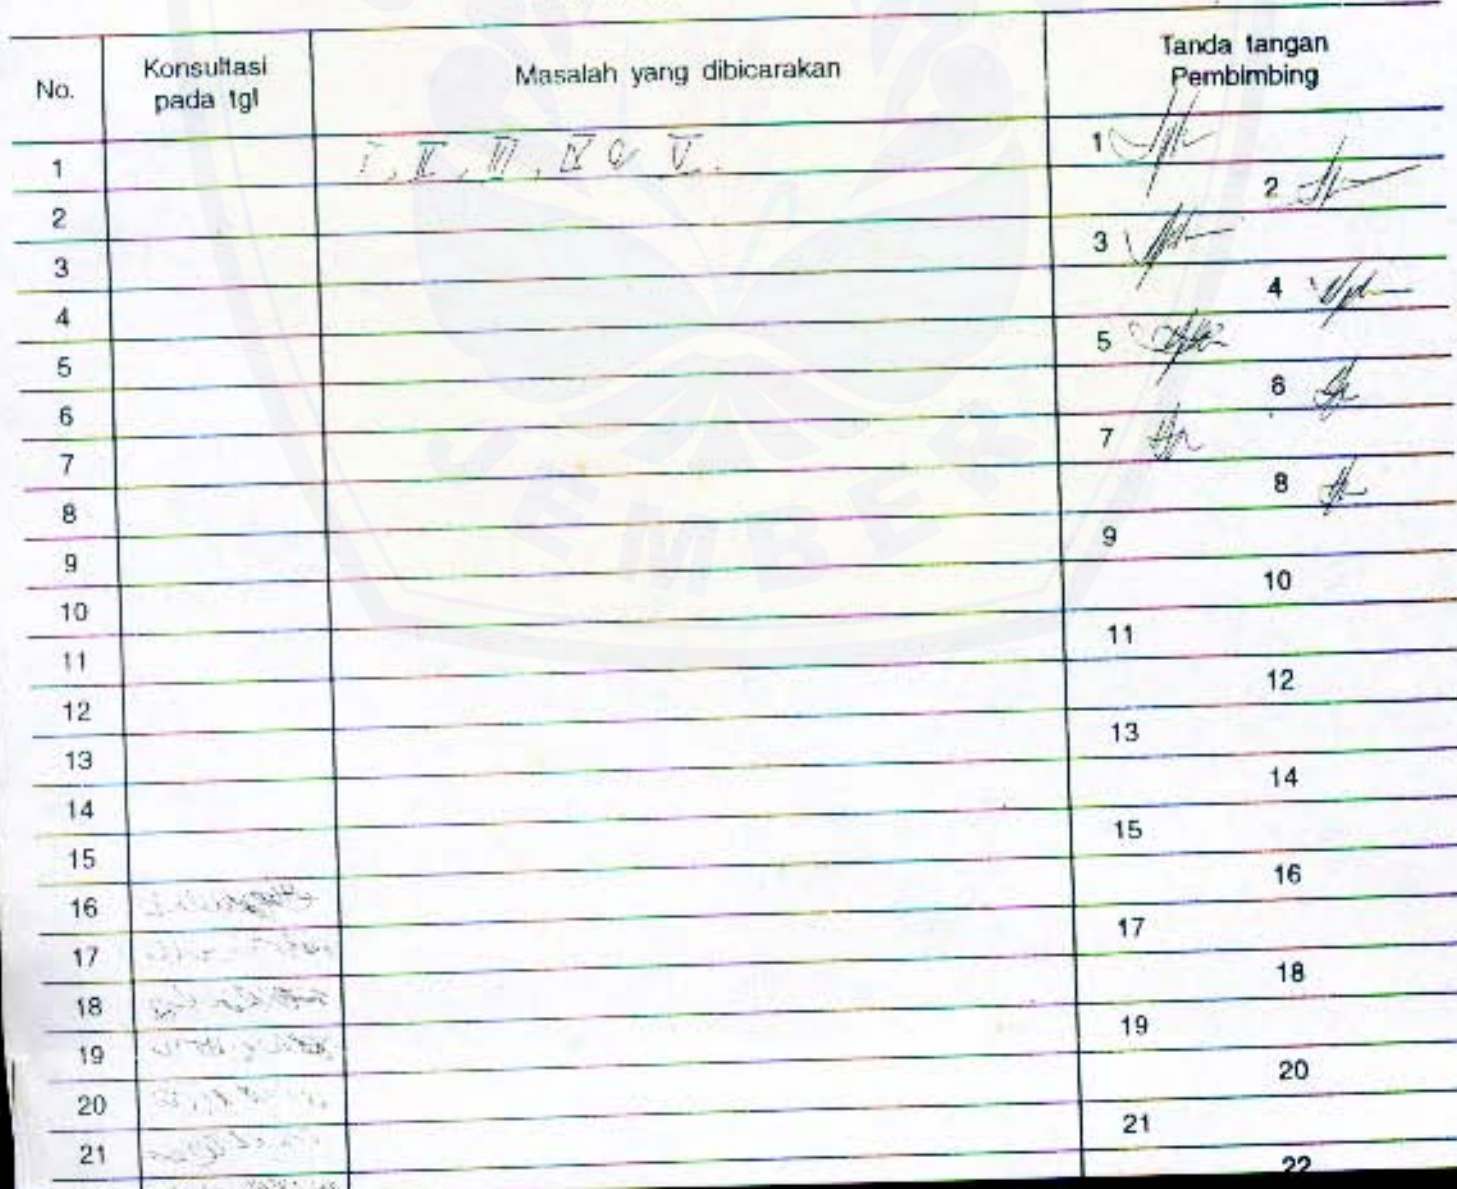 No.
Konsultasi pada tgl
Masalah yang dibicarakan
Tanda tangan Pembimbing
1 I, II, III, IV & V. 1
2 2
3 3
4 4
5 5
6 6
7 7
8 8
9 9
10 10
11 11
12 12
13 13
14 14
15 15
16 16
17 17
18 18
19 19
20 20
21 21
22
JEMBER